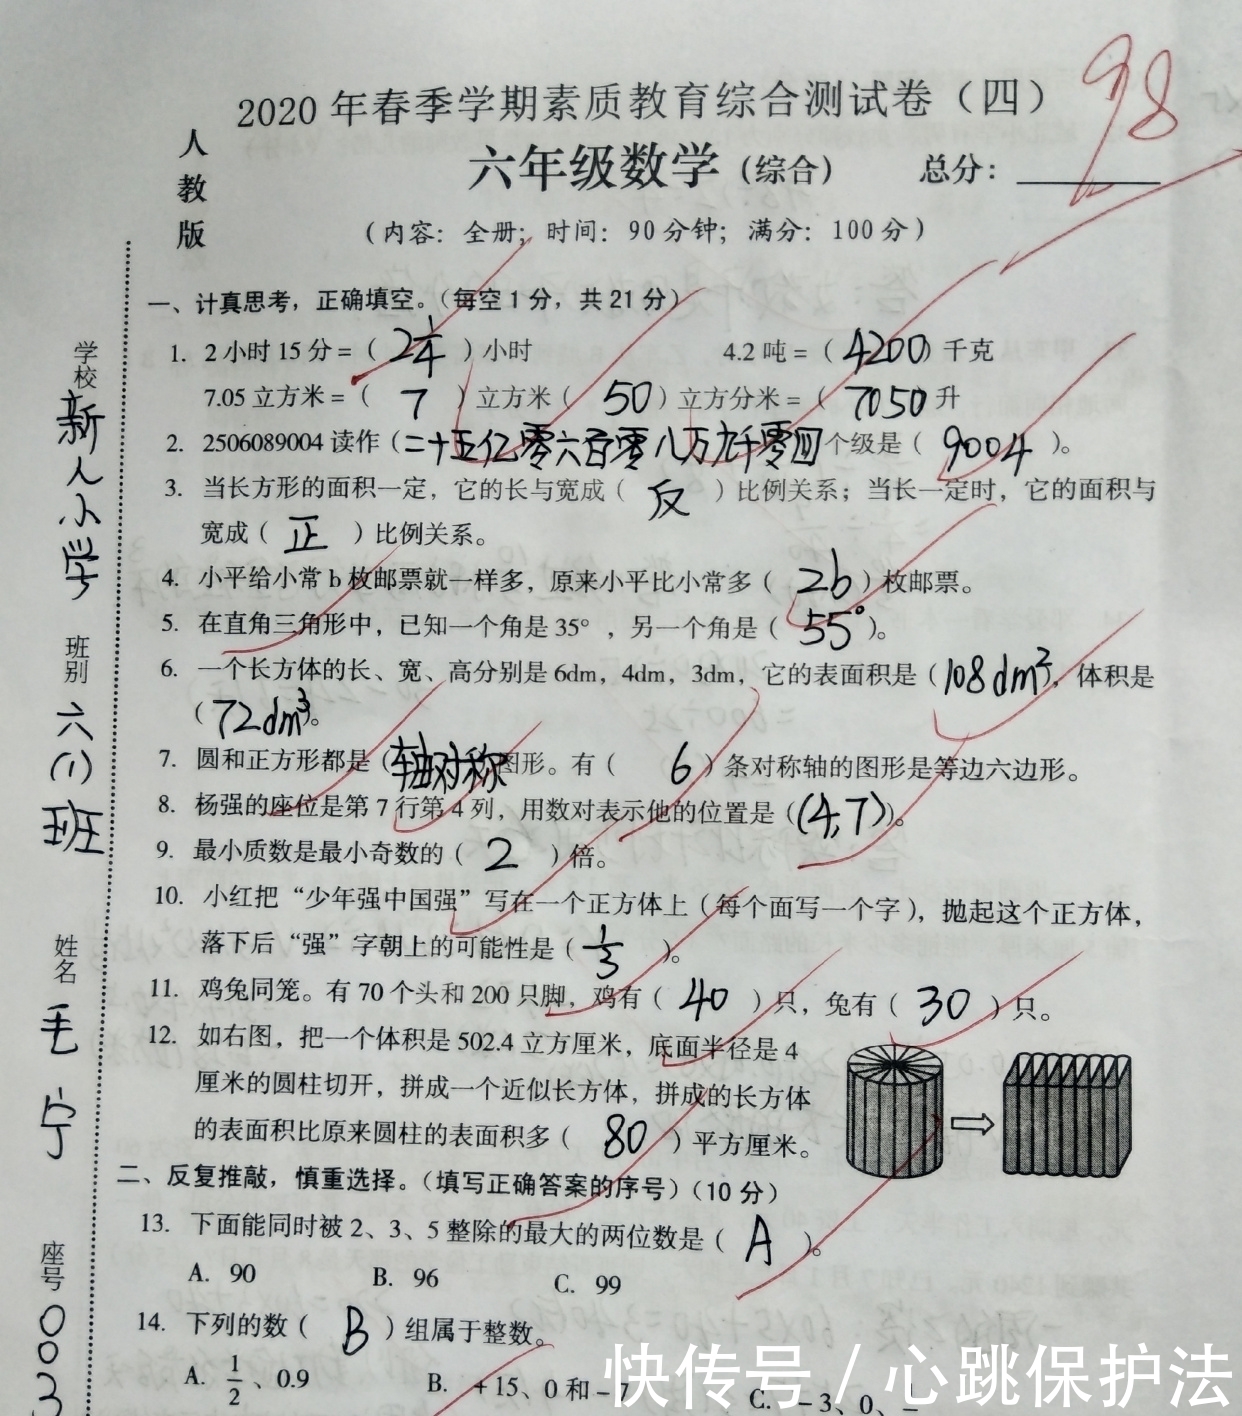 98
2020年春季学期素质教育综合测试卷（四）
人教版
六年级数学（综合） 总分：
（内容：全册；时间：90分钟；满分：100分）
一、计真思考，正确填空。（每空1分，共21分）
1. 2小时15分=（ 2 1/4 ）小时 4.2吨=（ 4200 ）千克
7.05立方米=（ 7 ）立方米（ 50 ）立方分米=（ 7050 升
2. 2506089004读作（二十五亿零六百零八万九千零四 个级是（ 9004 ）。
3. 当长方形的面积一定，它的长与宽成（ 反 ）比例关系；当长一定时，它的面积与
宽成（ 正 ）比例关系。
4. 小平给小常b枚邮票就一样多，原来小平比小常多（ 2b ）枚邮票。
5. 在直角三角形中，已知一个角是35°，另一个角是（ 55° ）。
6. 一个长方体的长、宽、高分别是6dm，4dm，3dm，它的表面积是（108dm²），体积是
（72dm³）。
7. 圆和正方形都是（轴对称 图形。有（ 6 ）条对称轴的图形是等边六边形。
8. 杨强的座位是第7行第4列，用数对表示他的位置是（(4,7)）。
9. 最小质数是最小奇数的（ 2 ）倍。
10. 小红把“少年强中国强”写在一个正方体上（每个面写一个字），抛起这个正方体，
落下后“强”字朝上的可能性是（ 1/3 ）。
11. 鸡兔同笼。有70个头和200只脚，鸡有（ 40 ）只，兔有（ 30 ）只。
12. 如右图，把一个体积是502.4立方厘米，底面半径是4
厘米的圆柱切开，拼成一个近似长方体，拼成的长方体
的表面积比原来圆柱的表面积多（ 80 ）平方厘米。
二、反复推敲，慎重选择。（填写正确答案的序号）（10分）
13. 下面能同时被2、3、5整除的最大的两位数是（ A ）。
A. 90 B. 96 C. 99
14. 下列的数（ B ）组属于整数。
A. 1/2、0.9 B. +15、0和-7 C. -3、0、
学校 新人小学
班别 六(1)班
姓名 毛宁
座号 003
快传号 / 心跳保护法